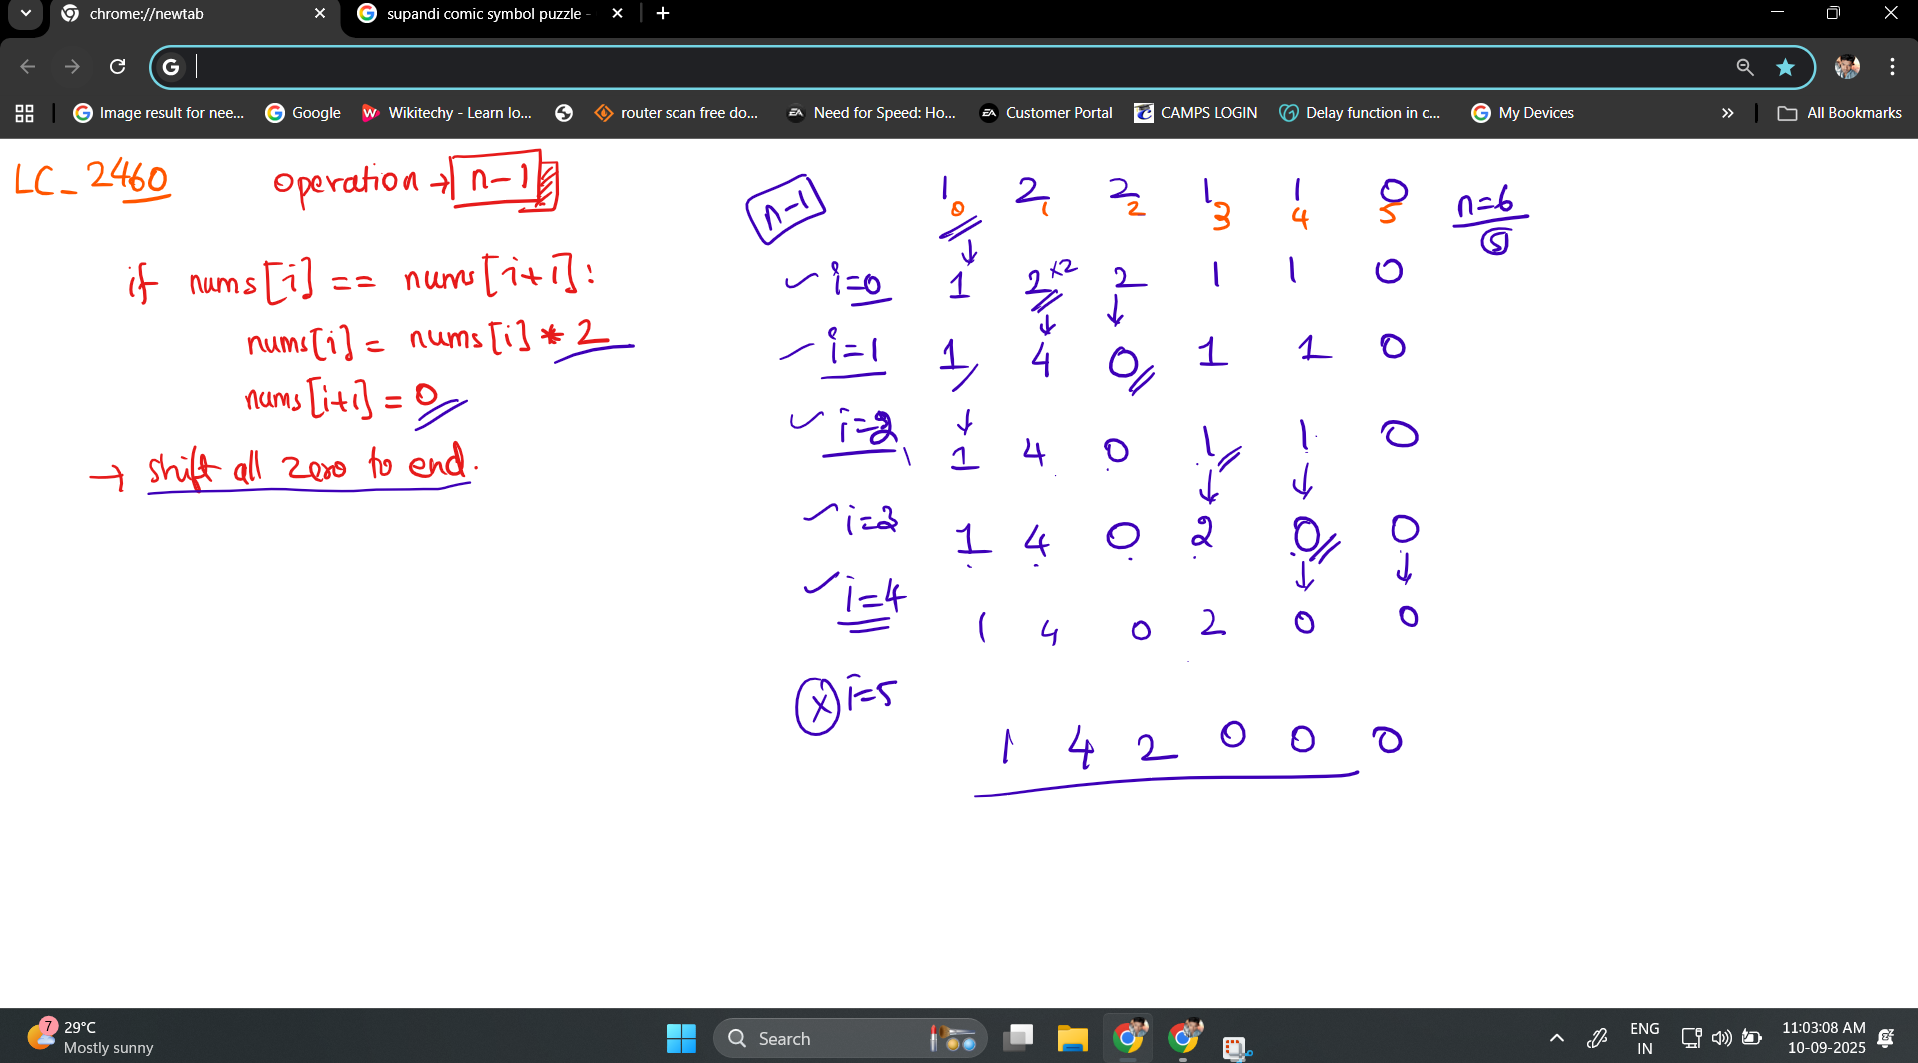 chrome://newtab
supandi comic symbol puzzle -
Image result for nee...
Google
Wikitechy - Learn lo...
router scan free do...
Need for Speed: Ho...
Customer Portal
CAMPS LOGIN
Delay function in c...
My Devices
All Bookmarks
LC_2460
operation → n-1
if nums[i] == nums[i+1]:
nums[i] = nums[i] * 2
nums[i+1] = 0
→ shift all zero to end.
n-1
1 2 2 1 1 0
0 1 2 3 4 5
n=6
5
i=0 1 2 ×2 2 1 1 0
i=1 1 4 0 1 1 0
i=2 1 4 0 1 1 0
i=3 1 4 0 2 0 0
i=4 1 4 0 2 0 0
x i=5
1 4 2 0 0 0
7
29°C
Mostly sunny
Search
ENG
IN
11:03:08 AM
10-09-2025